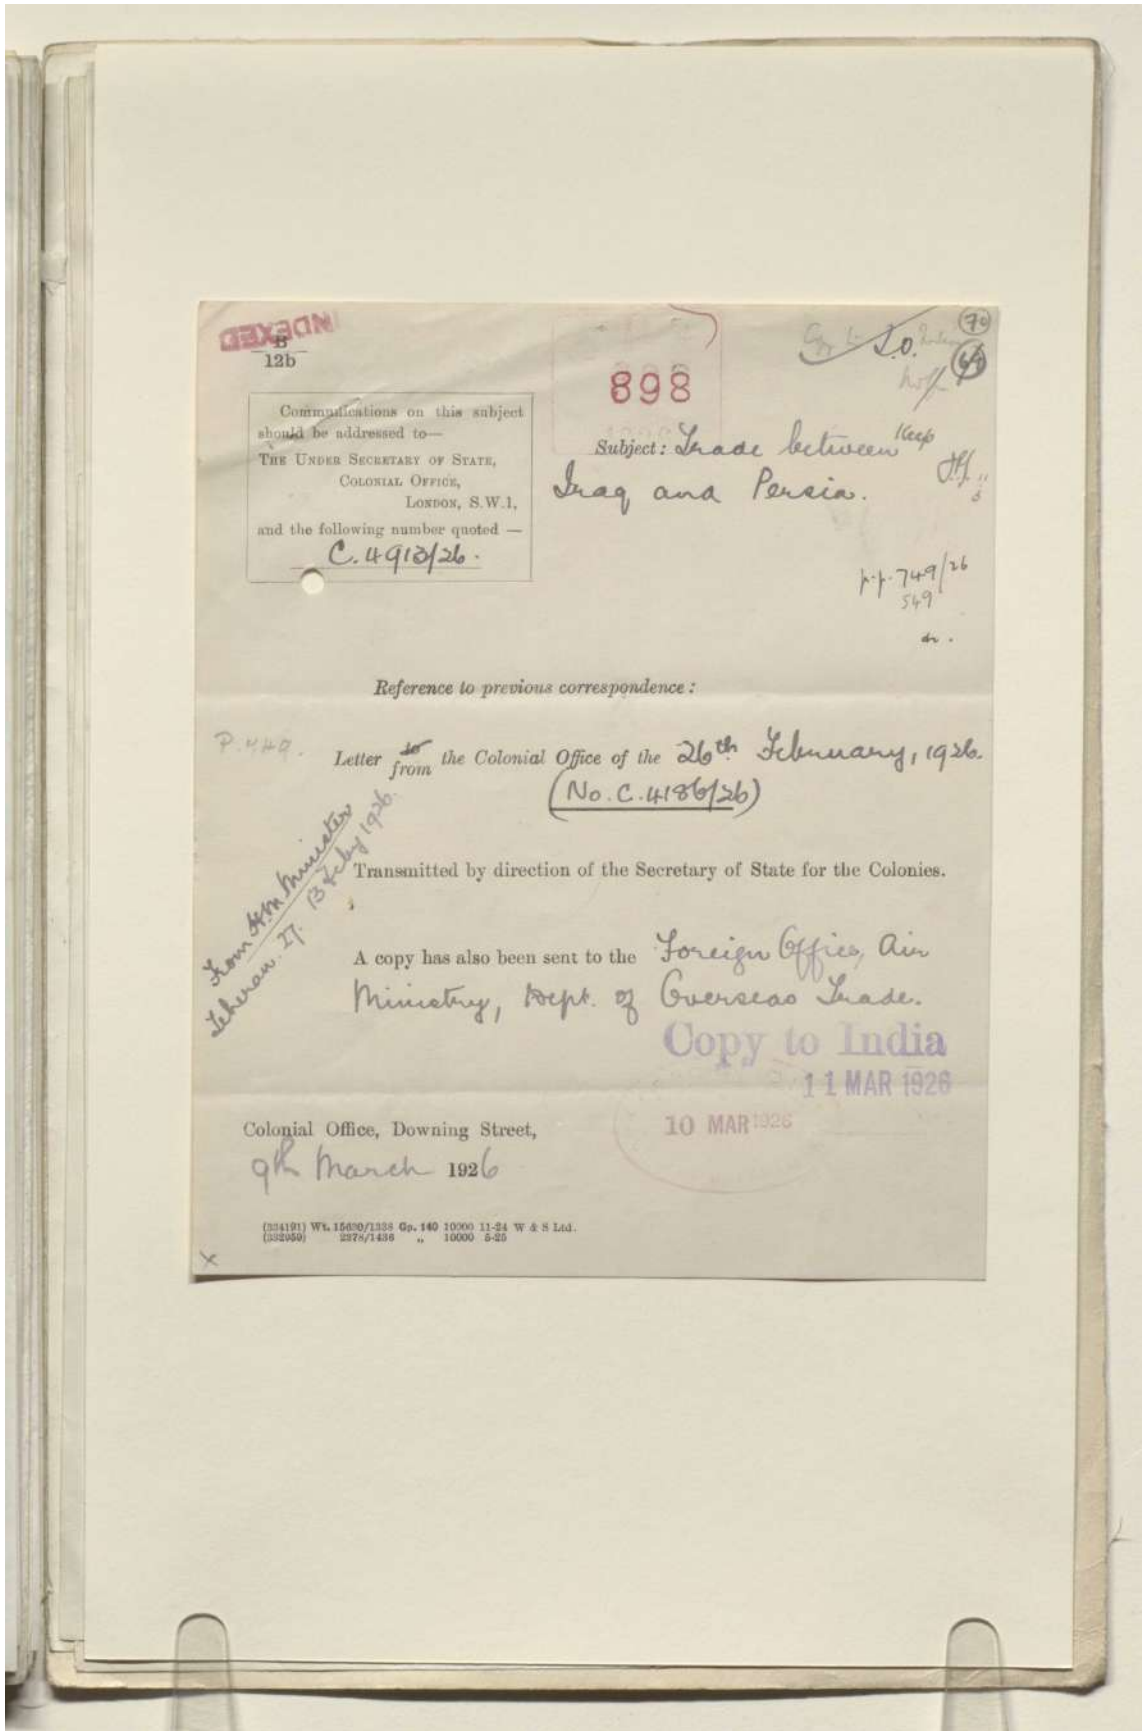 INDEXED
B
12b
898
70
Communications on this subject
should be addressed to—
THE UNDER SECRETARY OF STATE,
COLONIAL OFFICE,
LONDON, S.W.1,
and the following number quoted —
C. 4913/26.
Keep
Subject: Trade between
Iraq and Persia.
p.p. 749/26
549
Reference to previous correspondence:
P.749.
Letter to from the Colonial Office of the 26th February, 1926.
(No. C. 4186/26)
From H.M. Minister
Teheran. 27. 13 Feby 1926.
Transmitted by direction of the Secretary of State for the Colonies.
A copy has also been sent to the Foreign Office, Air
Ministry, Dept. of Overseas Trade.
Copy to India
11 MAR 1926
10 MAR 1926
Colonial Office, Downing Street,
9th March 1926
(334191) Wt. 15630/1338 Gp. 140 10000 11-24 W & S Ltd.
(332959) 2378/1436 „ 10000 5-25